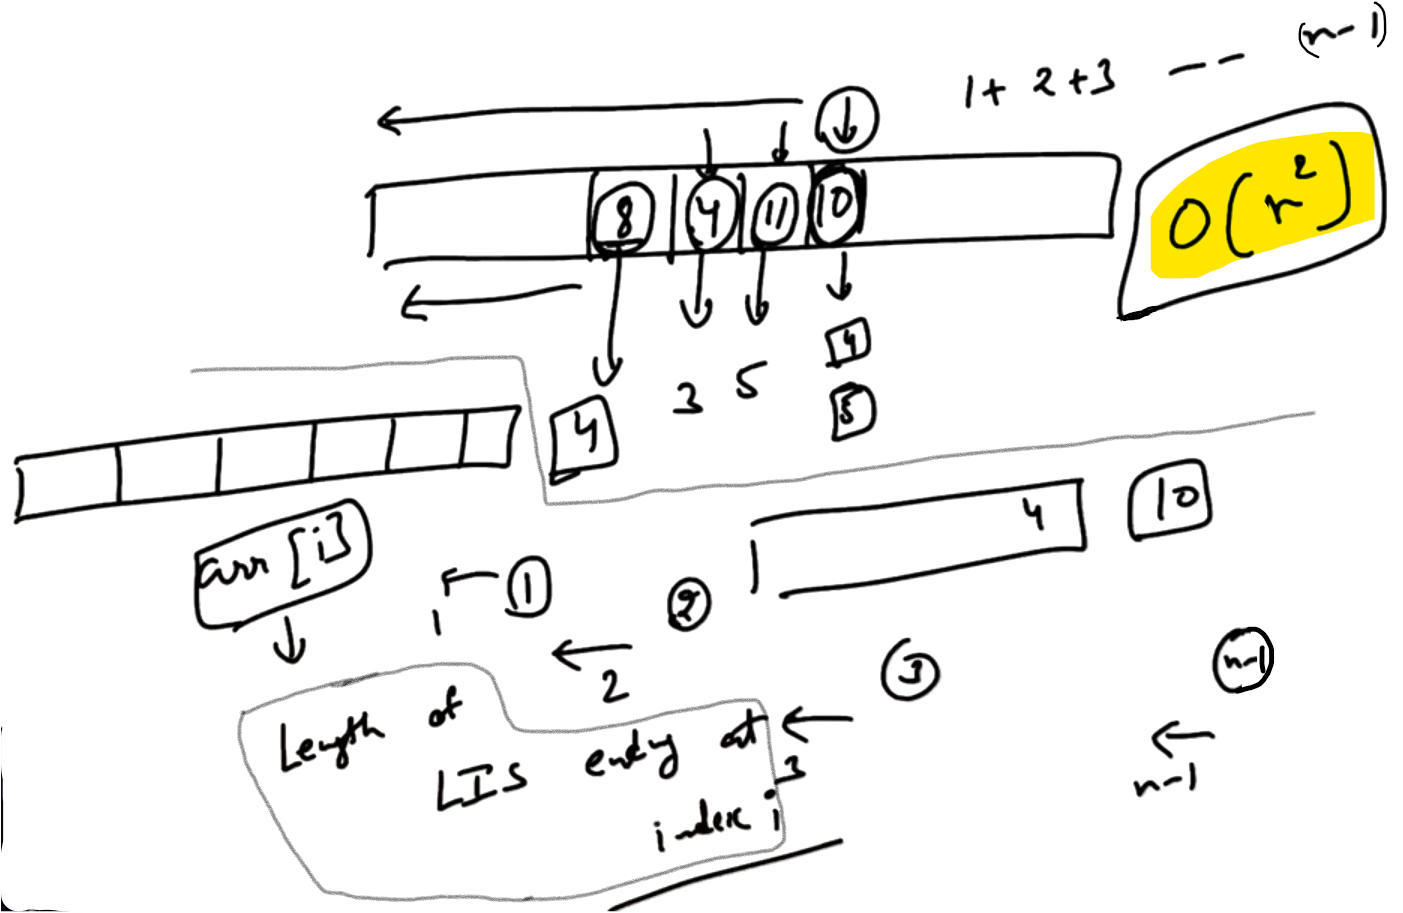 1 + 2 + 3 -- -- (n-1)
8 4 11 10
O(n²)
4 3 5 4
5
4 10
arr [i]
1 ①
②
2
③
3
n-1
n-1
Length of
LIS ending at
index i